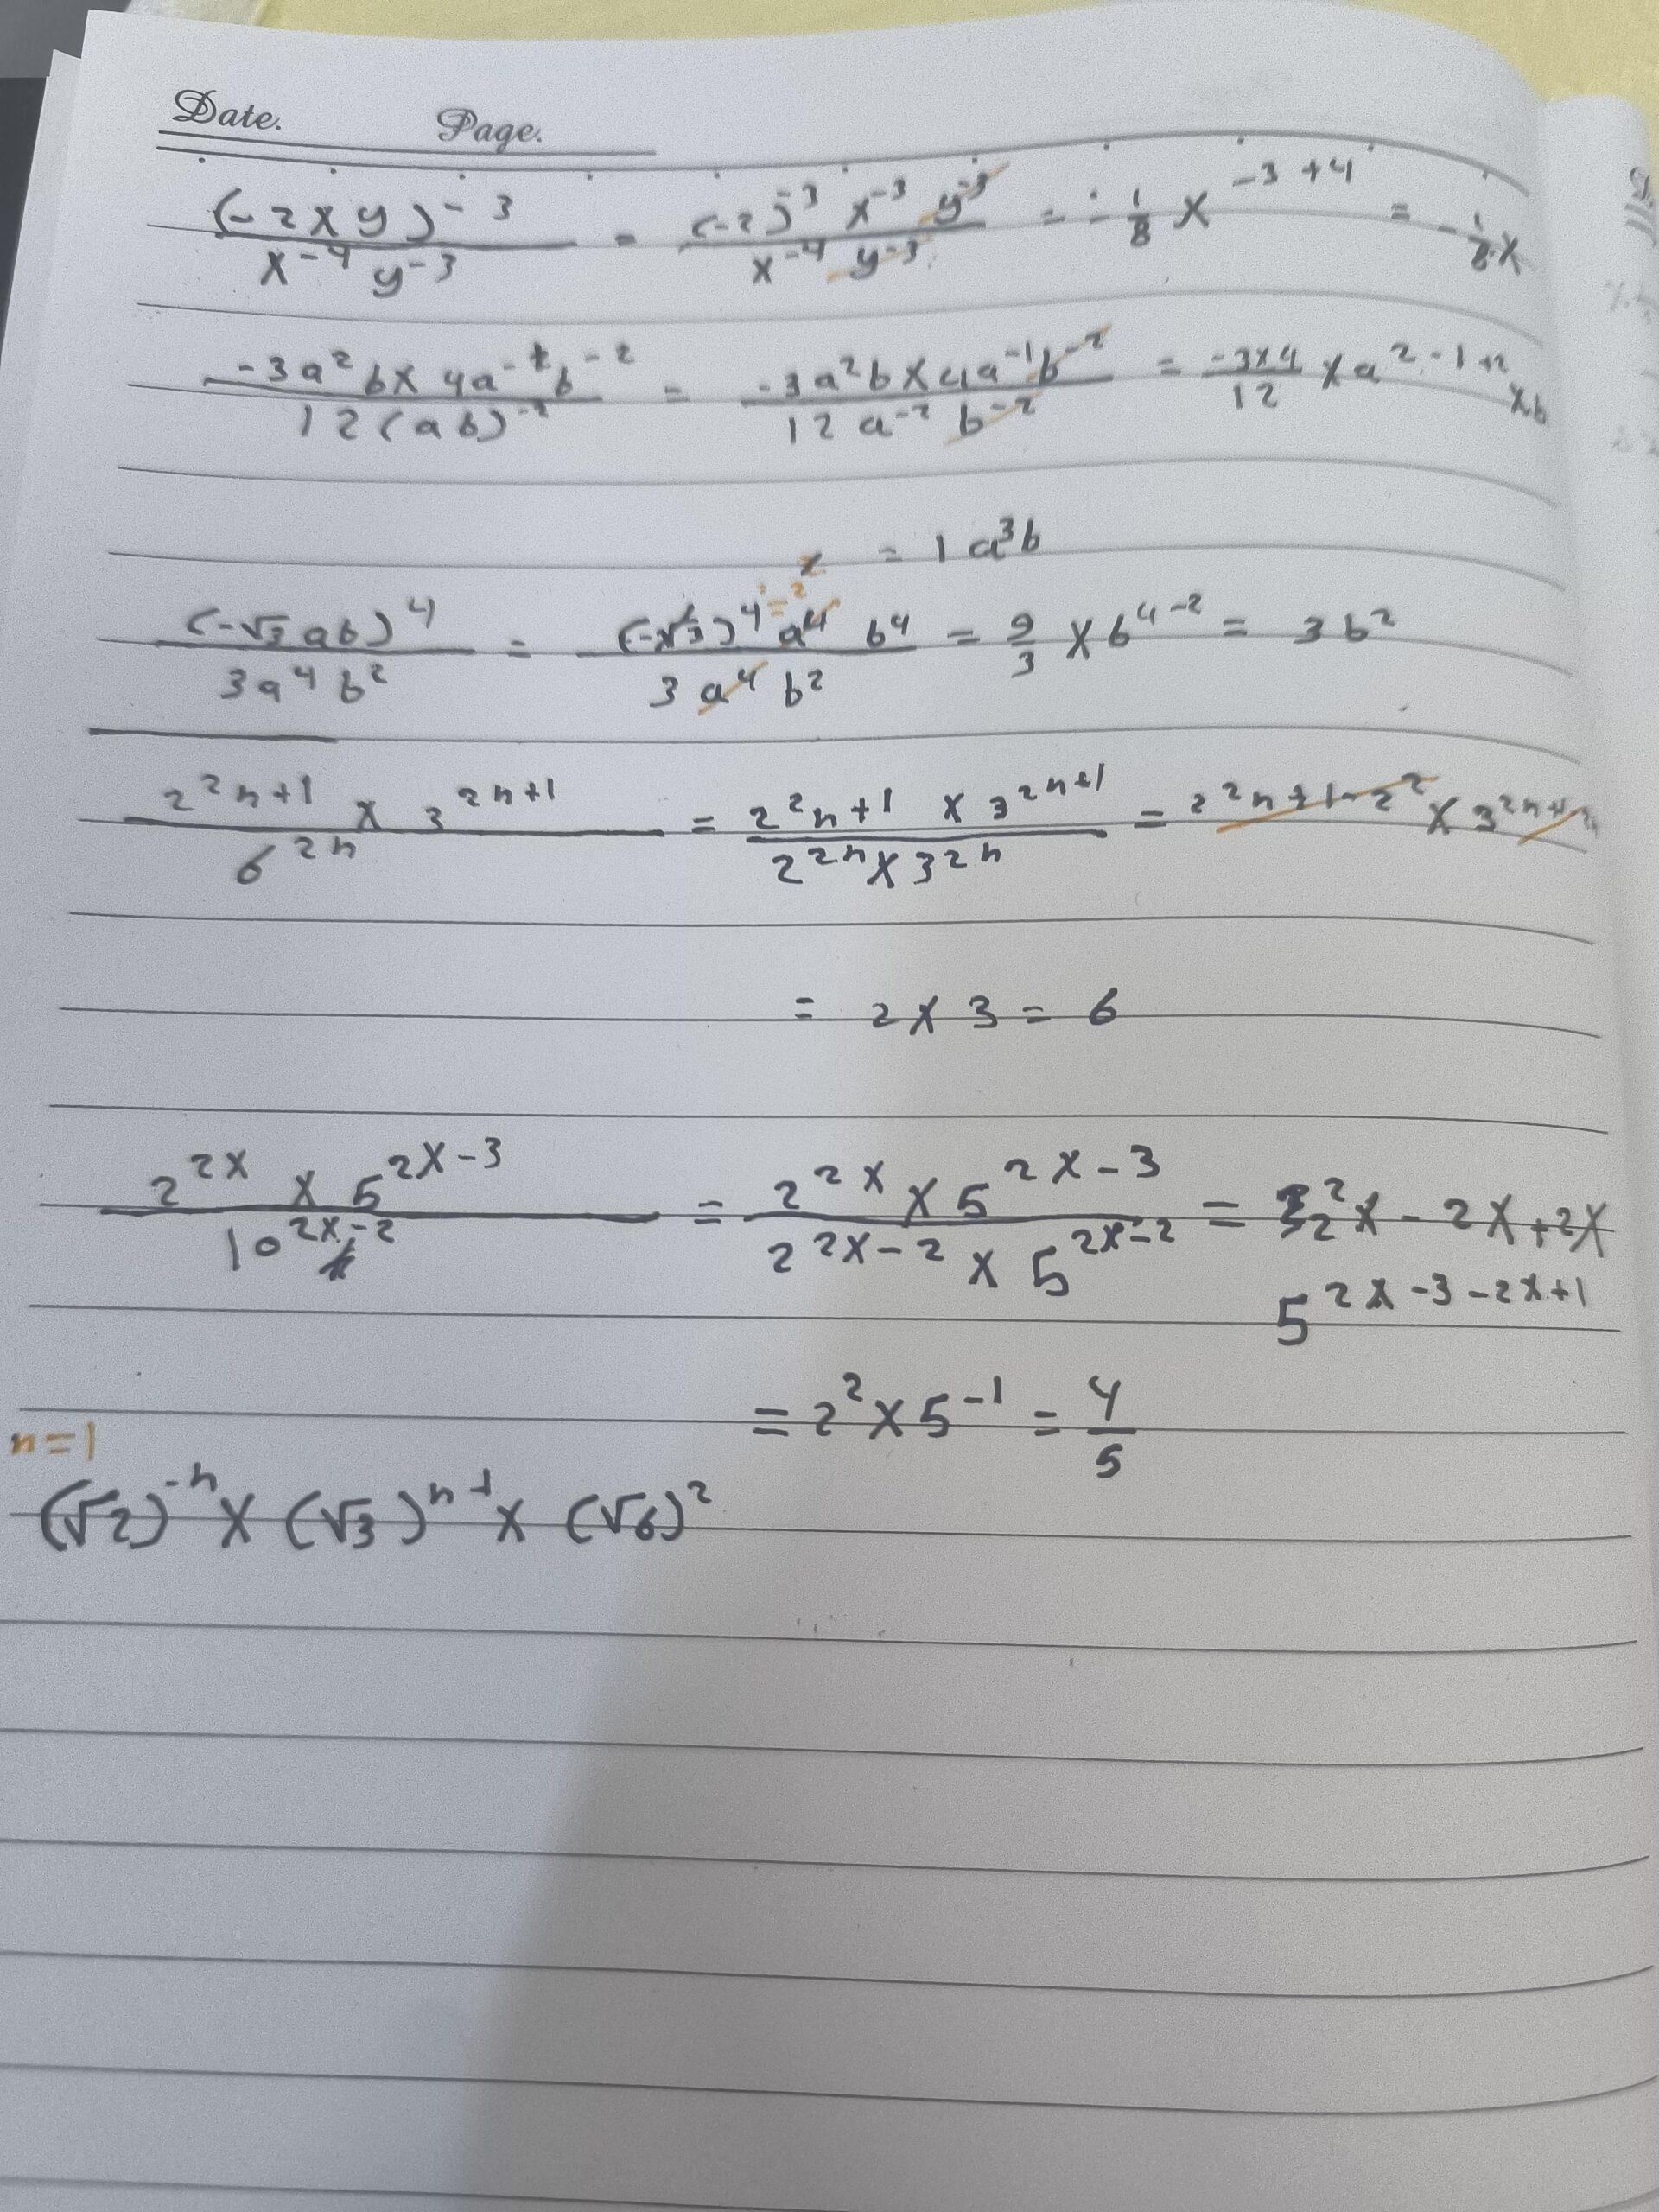 Date. Page.
(-2xy)^-3 / x^-4 y^-3 = (-2)^-3 x^-3 y^-3 / x^-4 y^-3 = -1/8 x^-3+4 = -1/8 x
-3a^2 b × 4a^-1 b^-2 / 12(ab)^-2 = -3a^2 b × 4a^-1 b^-2 / 12 a^-2 b^-2 = -3×4/12 × a^2-1+2 × b
= 1 a^3 b
(-√3 ab)^4 / 3a^4 b^2 = (-√3)^4 a^4 b^4 / 3 a^4 b^2 = 9/3 × b^4-2 = 3b^2
2^2n+1 × 3^2n+1 / 6^2n = 2^2n+1 × 3^2n+1 / 2^2n × 3^2n = 2^2n+1-2^2 × 3^2n+
= 2 × 3 = 6
2^2x × 5^2x-3 / 10^2x-2 = 2^2x × 5^2x-3 / 2^2x-2 × 5^2x-2 = 2^2x - 2x + 2x
5^2x-3-2x+1
= 2^2 × 5^-1 = 4/5
n=1
(√2)^-n × (√3)^n-1 × (√6)^2